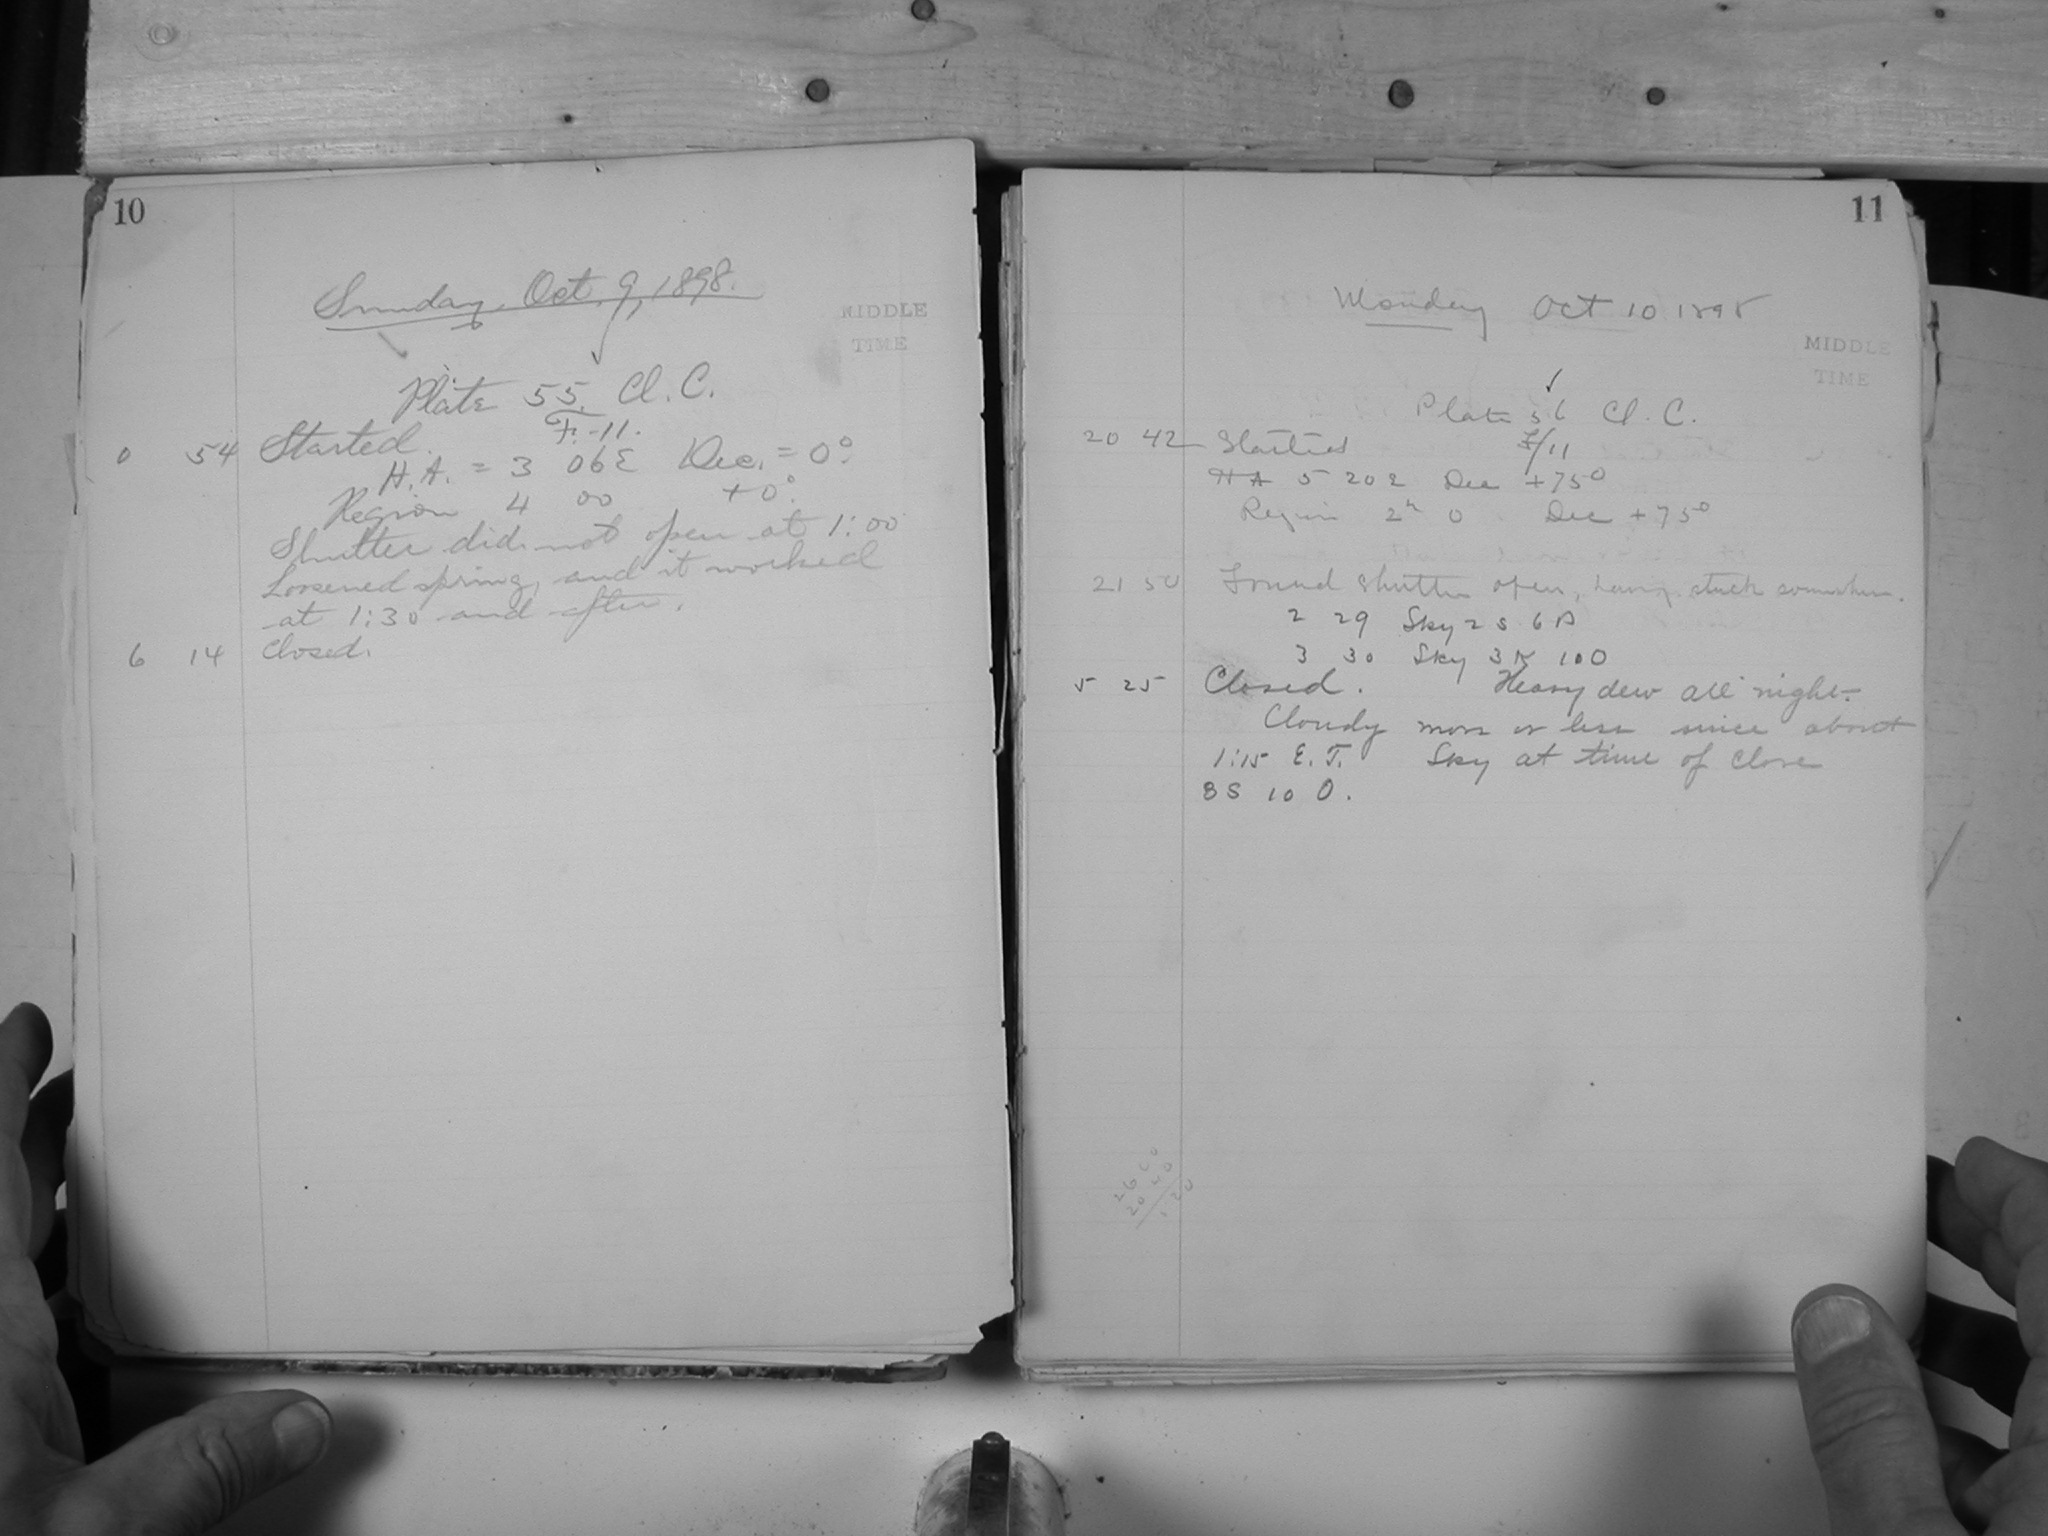 10
Sunday, Oct. 9, 1898.
MIDDLE
TIME
Plate 55, Cl. C.
F.-11.
0 54 Started.
H.A. = 3 06 E Dec. = 0°.
Region 4 00 +0°.
Shutter did not open at 1:00
Loosened spring, and it worked
at 1:30 and after.
6 14 Closed.
11
Monday Oct 10 1898
MIDDLE
TIME
Plate 56 Cl. C.
20 42 Started F/11
HA 5 20 E Dec +75°
Region 2h 0 Dec +75°
21 50 Found shutter open, having stuck somewhere.
2 29 Sky 2 S 6
3 30 Sky 3 10 0
5 25 Closed. Heavy dew all night.
Cloudy more or less since about
1:15 E.T. Sky at time of close
8 S 10 0.
26 00
20 40
5 20